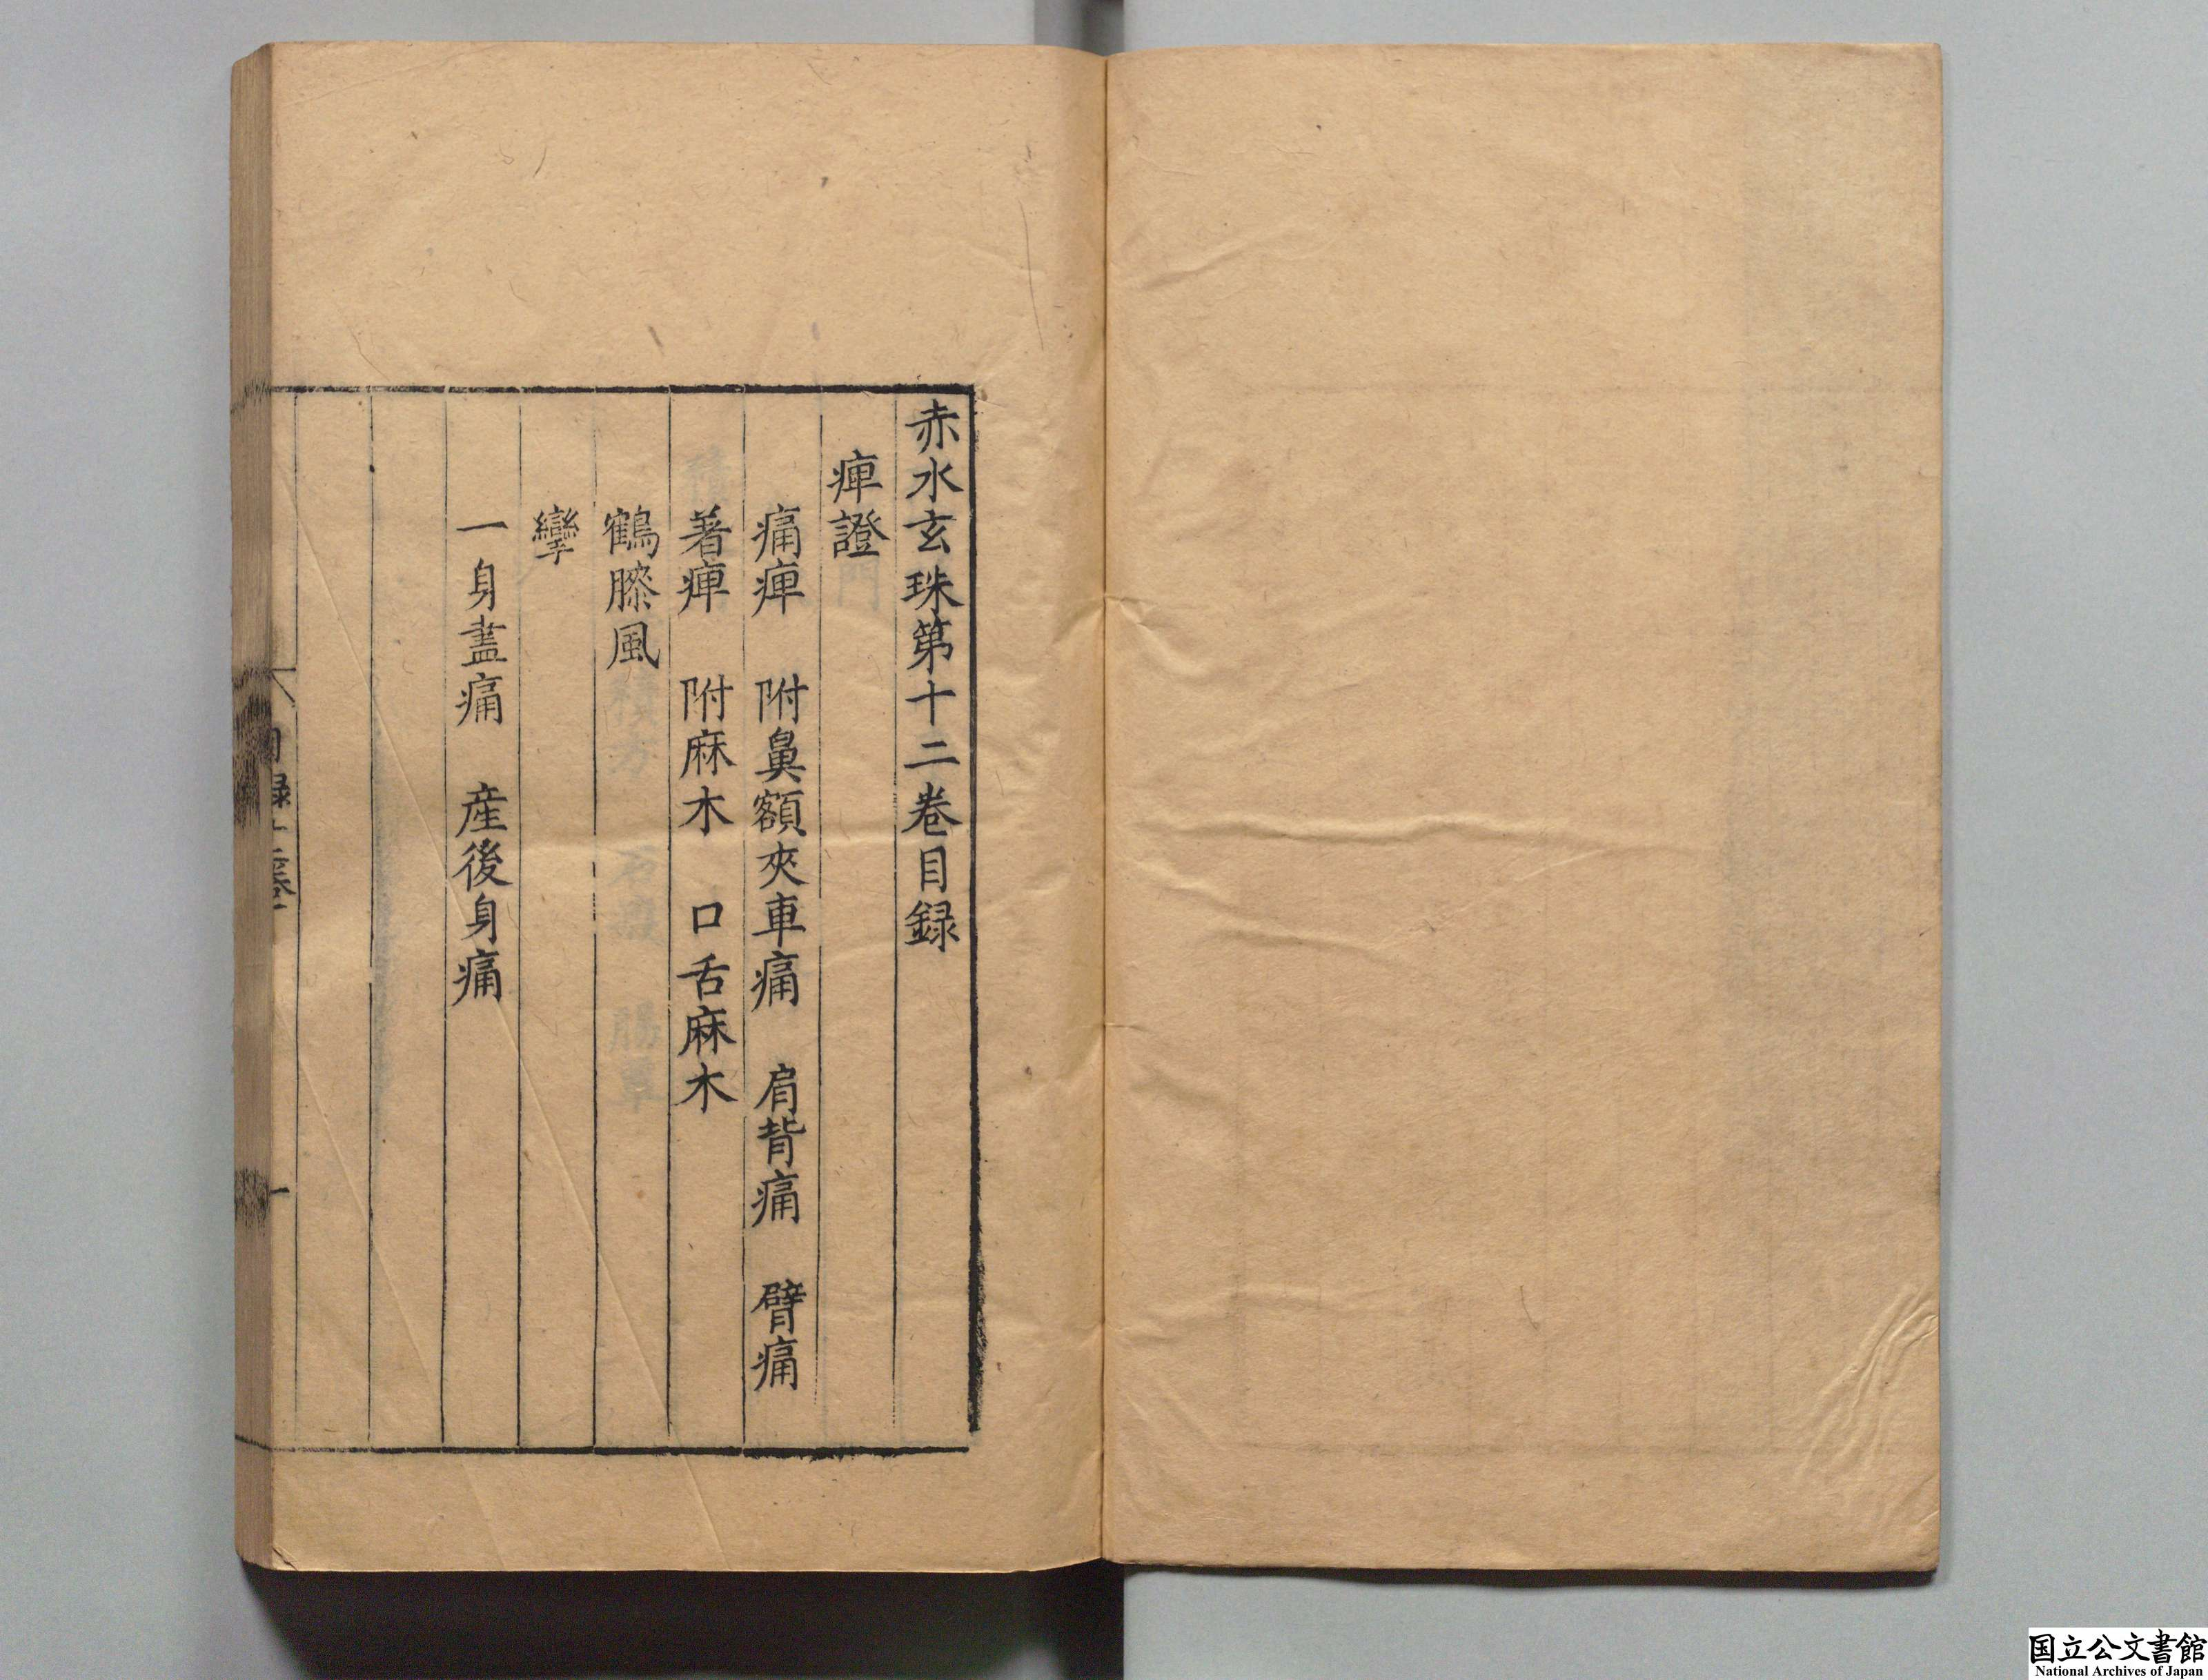 赤水玄珠第十二卷目録
痺證
痛痺 附鼻額夾車痛 肩背痛 臂痛
著痺 附麻木 口舌麻木
鶴膝風
攣
一身盡痛 産後身痛
一
国立公文書館
National Archives of Japan